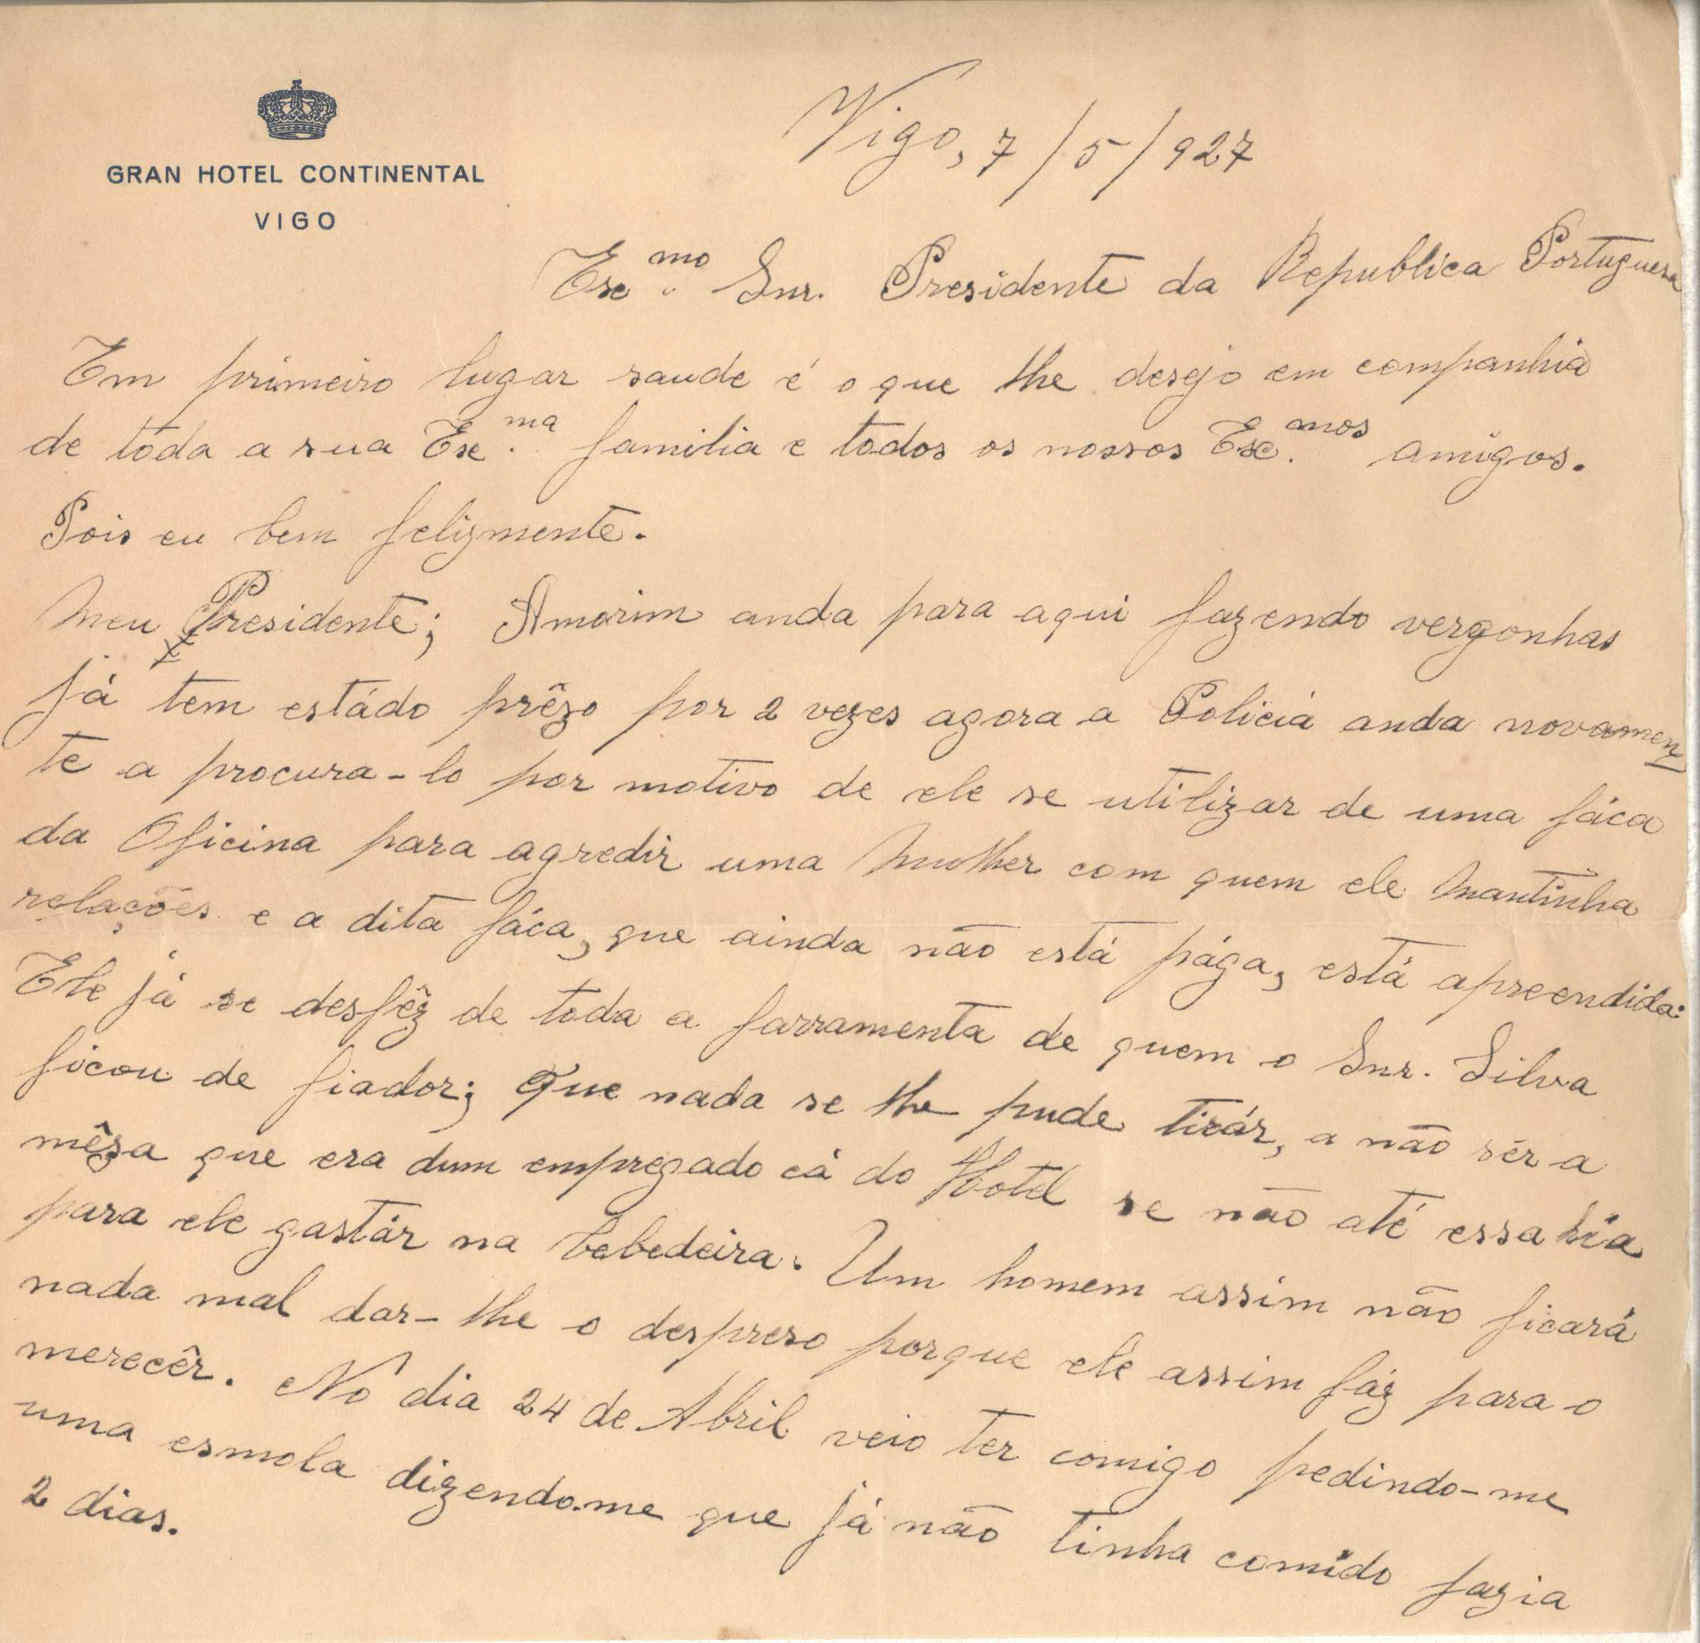 GRAN HOTEL CONTINENTAL
VIGO
Vigo, 7/5/927
Exc.mo Snr. Presidente da Republica Portuguesa
Em primeiro lugar saude é o que lhe desejo em companhia
de tôda a sua Exc.ma familia e todos os nossos Exc.mos amigos.
Pois eu bem felizmente.
Meu Presidente; Amorim anda para aqui fazendo vergonhas
já tem estádo prêzo por 2 vezes agora a Policia anda novamen
te a procura-lo por motivo de ele se utilizar de uma fáca
da Oficina para agredir uma Mulher com quem ele Mantinha
relações e a dita fáca, que ainda não está pága, está apreendida:
Ele já se desfêz de toda a farramenta de quem o Snr. Silva
ficou de fiador; Que nada se lhe pude tirár, a não sêr a
mêza que era dum empregado cá do Hotel se não até essa hia
para ele gastár na bebedeira. Um homem assim não ficará
nada mal dar-lhe o despreso porque ele assim fáz para o
merecêr. No dia 24 de Abril veio ter comigo pedindo-me
uma esmola dizendo-me que já não tinha comido fazia
2 dias.